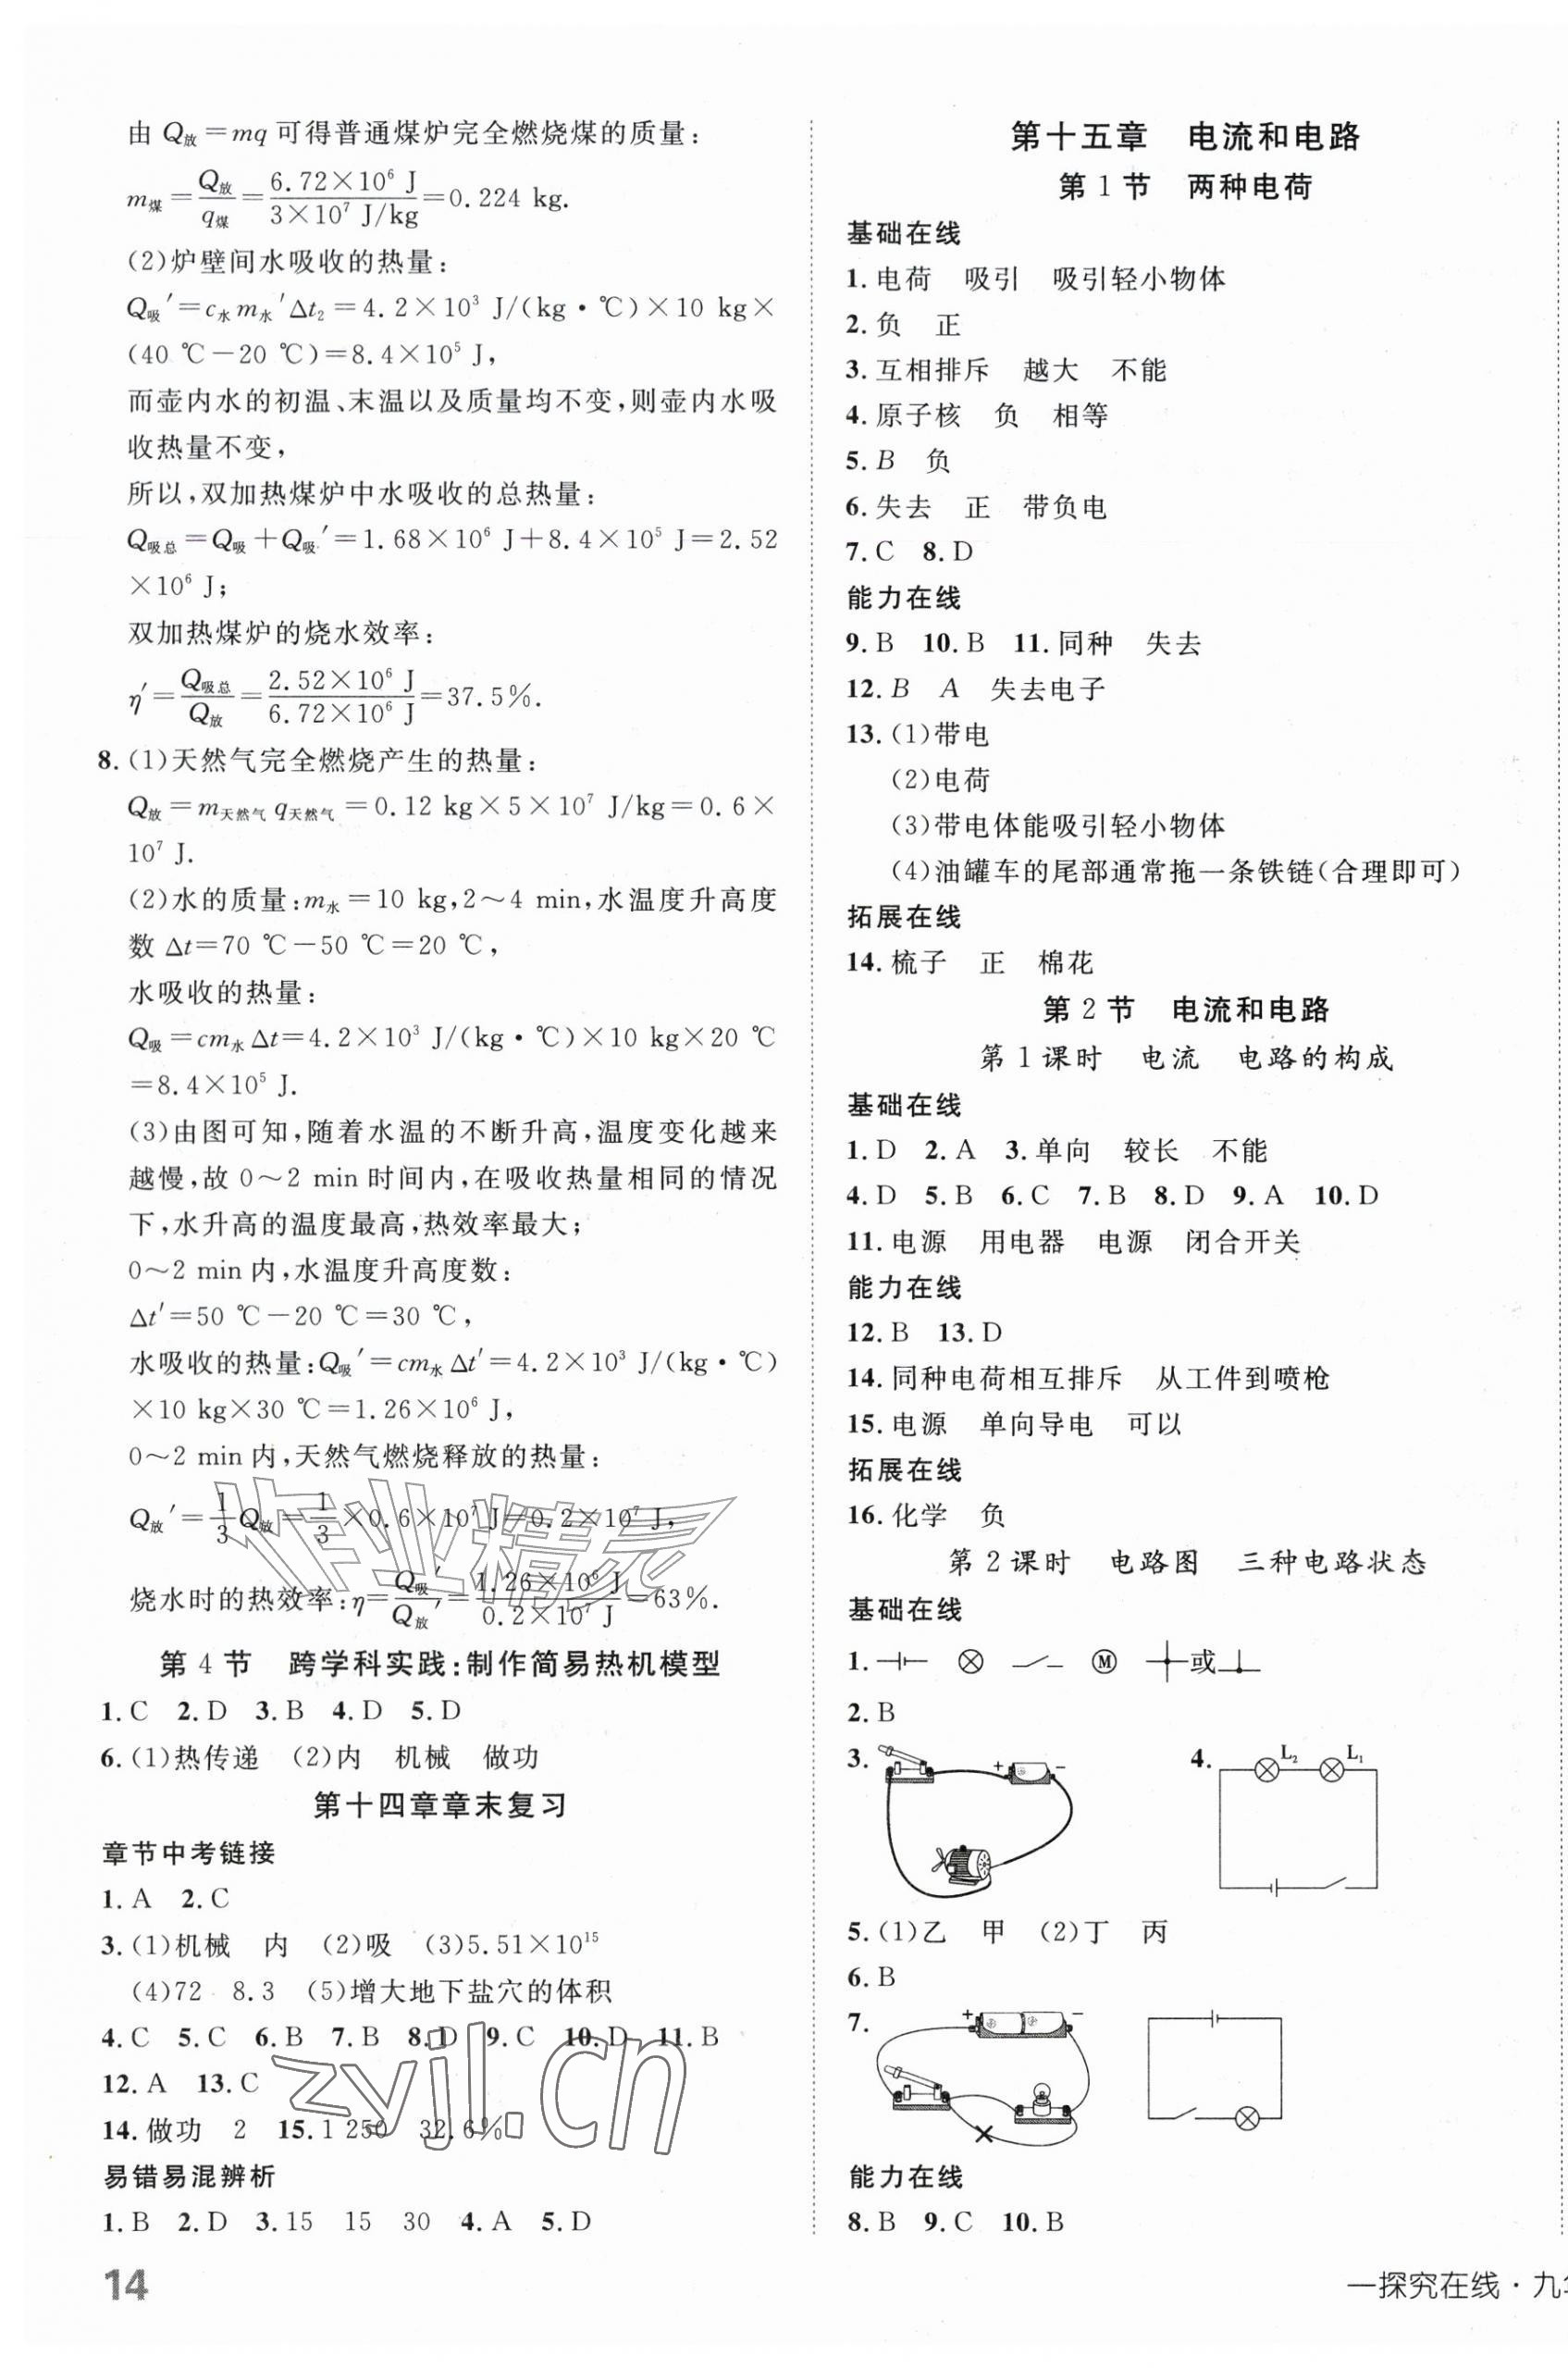 由 Q放=mq 可得普通煤炉完全燃烧煤的质量:
m煤=Q放/q煤=6.72×10⁶ J/3×10⁷ J/kg=0.224 kg.
(2)炉壁间水吸收的热量:
Q吸′=c水m水′Δt₂=4.2×10³ J/(kg·℃)×10 kg×
(40 ℃-20 ℃)=8.4×10⁵ J,
而壶内水的初温、末温以及质量均不变,则壶内水吸
收热量不变,
所以,双加热煤炉中水吸收的总热量:
Q吸总=Q吸+Q吸′=1.68×10⁶ J+8.4×10⁵ J=2.52
×10⁶ J;
双加热煤炉的烧水效率:
η′=Q吸总/Q放=2.52×10⁶ J/6.72×10⁶ J=37.5%.
8.(1)天然气完全燃烧产生的热量:
Q放=m天然气q天然气=0.12 kg×5×10⁷ J/kg=0.6×
10⁷ J.
(2)水的质量:m水=10 kg,2~4 min,水温度升高度
数 Δt=70 ℃-50 ℃=20 ℃,
水吸收的热量:
Q吸=cm水Δt=4.2×10³ J/(kg·℃)×10 kg×20 ℃
=8.4×10⁵ J.
(3)由图可知,随着水温的不断升高,温度变化越来
越慢,故 0~2 min 时间内,在吸收热量相同的情况
下,水升高的温度最高,热效率最大;
0~2 min 内,水温度升高度数:
Δt′=50 ℃-20 ℃=30 ℃,
水吸收的热量:Q吸′=cm水Δt′=4.2×10³ J/(kg·℃)
×10 kg×30 ℃=1.26×10⁶ J,
0~2 min 内,天然气燃烧释放的热量:
Q放′=1/3Q放=1/3×0.6×10⁷ J=0.2×10⁷ J,
烧水时的热效率:η=Q吸′/Q放′=1.26×10⁶ J/0.2×10⁷ J=63%.
第 4 节 跨学科实践:制作简易热机模型
1.C 2.D 3.B 4.D 5.D
6.(1)热传递 (2)内 机械 做功
第十四章章末复习
章节中考链接
1.A 2.C
3.(1)机械 内 (2)吸 (3)5.51×10¹⁵
(4)72 8.3 (5)增大地下盐穴的体积
4.C 5.C 6.B 7.B 8.D 9.C 10.D 11.B
12.A 13.C
14.做功 2 15.1 250 32.6%
易错易混辨析
1.B 2.D 3.15 15 30 4.A 5.D
14
作业精灵
zyjl.cn
第十五章 电流和电路
第 1 节 两种电荷
基础在线
1.电荷 吸引 吸引轻小物体
2.负 正
3.互相排斥 越大 不能
4.原子核 负 相等
5.B 负
6.失去 正 带负电
7.C 8.D
能力在线
9.B 10.B 11.同种 失去
12.B A 失去电子
13.(1)带电
(2)电荷
(3)带电体能吸引轻小物体
(4)油罐车的尾部通常拖一条铁链(合理即可)
拓展在线
14.梳子 正 棉花
第 2 节 电流和电路
第 1 课时 电流 电路的构成
基础在线
1.D 2.A 3.单向 较长 不能
4.D 5.B 6.C 7.B 8.D 9.A 10.D
11.电源 用电器 电源 闭合开关
能力在线
12.B 13.D
14.同种电荷相互排斥 从工件到喷枪
15.电源 单向导电 可以
拓展在线
16.化学 负
第 2 课时 电路图 三种电路状态
基础在线
1. M 或
2.B
3. + − 4. L₂ L₁
5.(1)乙 甲 (2)丁 丙
6.B
7. + −
能力在线
8.B 9.C 10.B
一探究在线·九